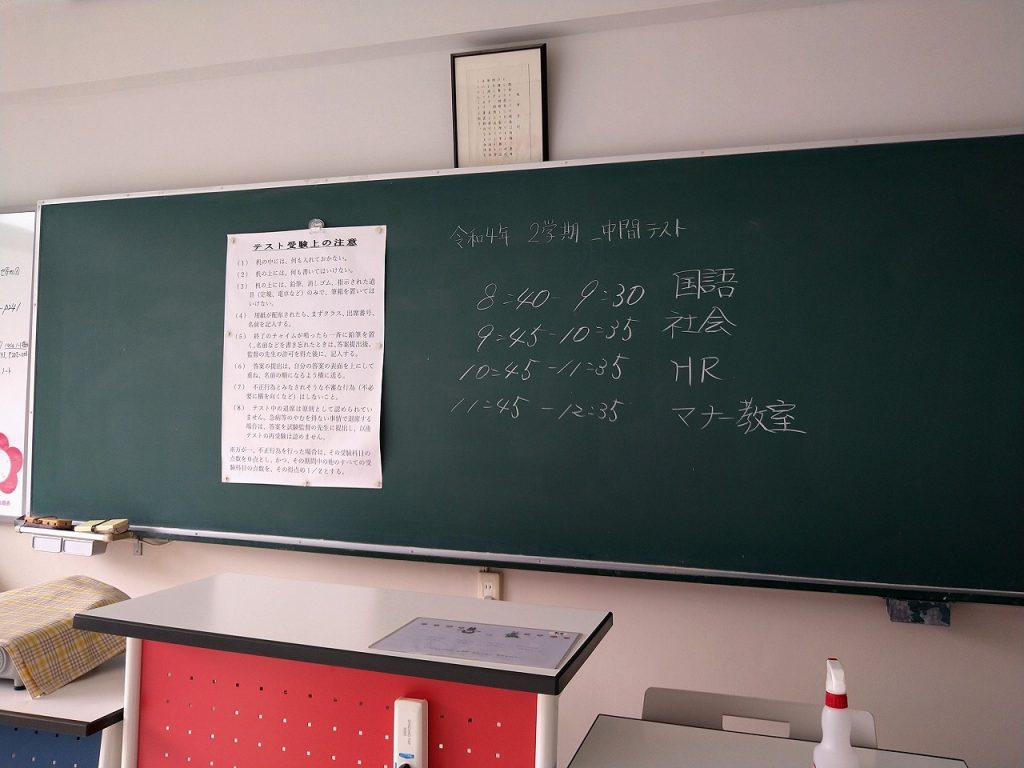 令和4年 2学期 中間テスト
8:40 - 9:30 国語
9:45 - 10:35 社会
10:45 - 11:35 HR
11:45 - 12:35 マナー教室
テスト受験上の注意
(1) 机の中には、何も入れておかない。
(2) 机の上には、何も書いてはいけない。
(3) 机の上には、鉛筆、消しゴム、指示された道
具(定規、電卓など)のみで、筆箱を置いては
いけない。
(4) 用紙が配布されたら、まずクラス、出席番号、
名前を記入する。
(5) 終了のチャイムが鳴ったら一斉に鉛筆を置
く。名前などを書き忘れたときは、答案提出後、
監督の先生の許可を得た後に、記入する。
(6) 答案の提出は、自分の答案の表面を上にして
重ね、名前の順になるよう横に送る。
(7) 不正行為とみなされそうな不審な行為(不必
要に横を向くなど)はしないこと。
(8) テスト中の退席は原則として認められてい
ません。急病等のやむを得ない事情で退席する
場合は、答案を試験監督の先生に提出し、以後
テストの再受験は認めません。
※万が一、不正行為を行った場合は、その受験科目の
点数を0点とし、かつ、その期間中の他のすべての受
験科目の点数を、その得点の1/2とする。